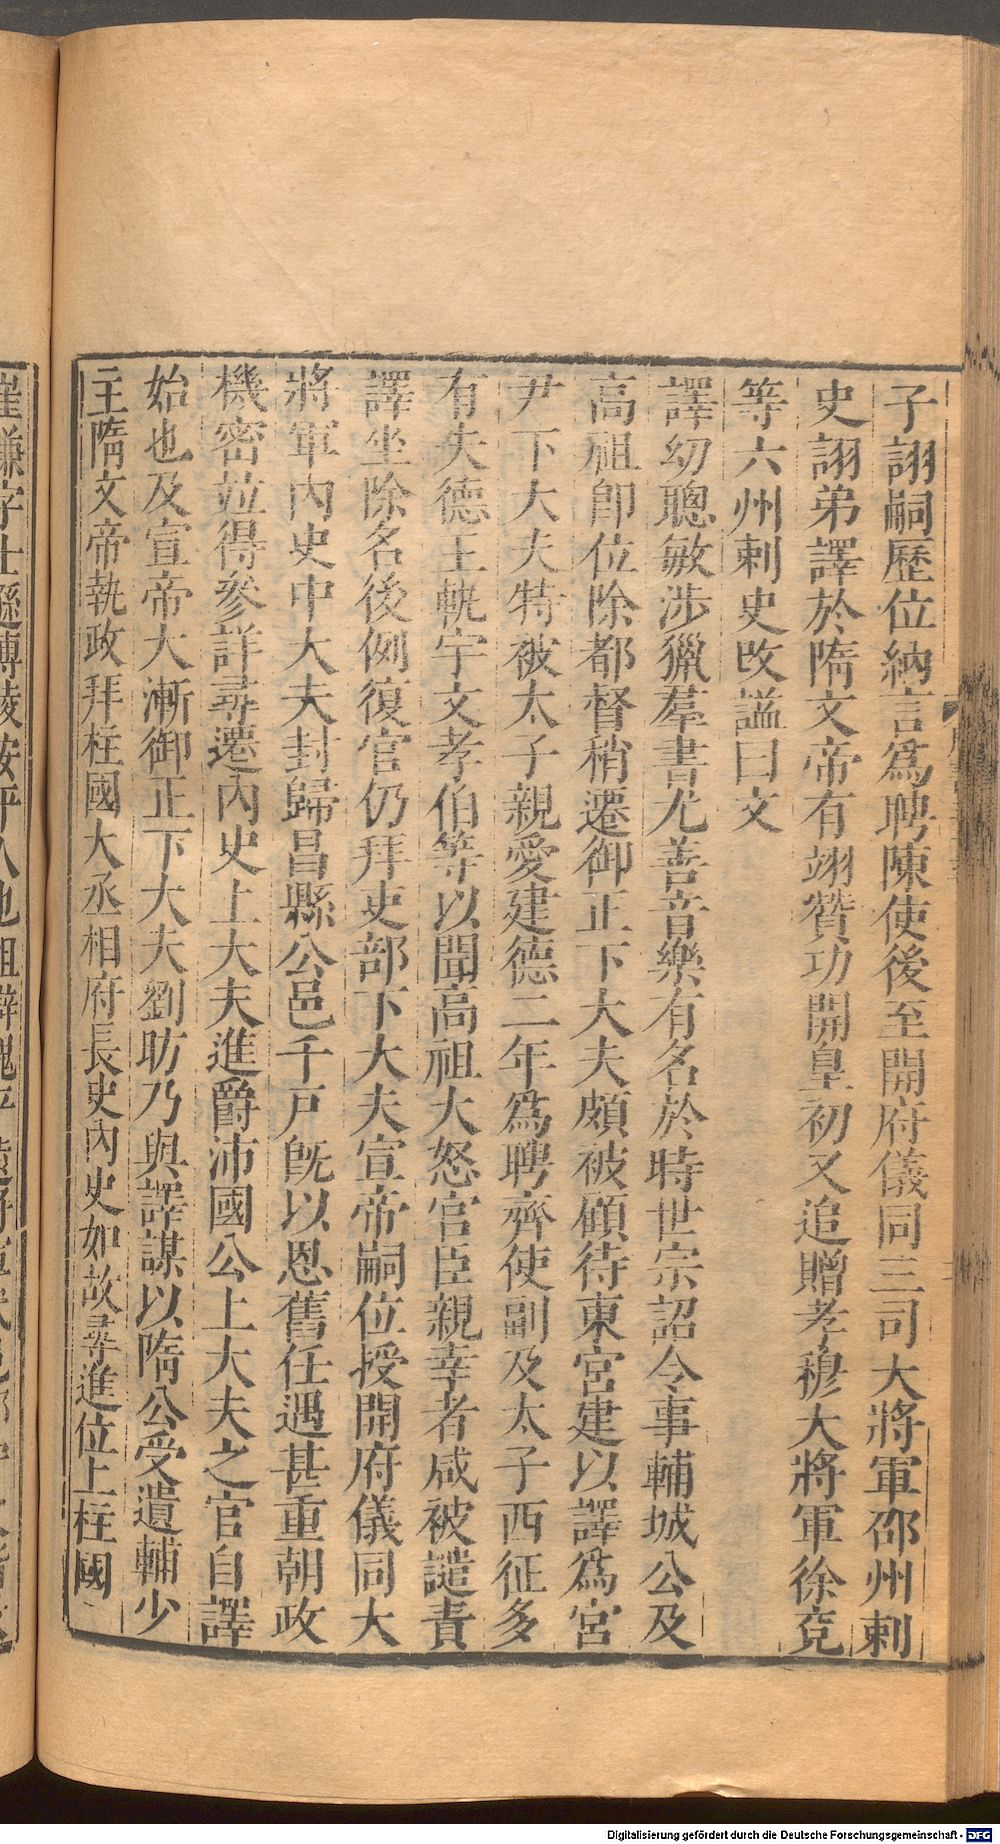 子詡嗣歷位納言爲聘陳使後至開府儀同三司大將軍邵州刺
史詡弟譯於隋文帝有翊贊功開皇初又追贈孝穆大將軍徐兗
等六州刺史改謚曰文
譯幼聰敏涉獵羣書尤善音樂有名於時世宗詔令事輔城公及
高祖卽位除都督稍遷御正下大夫頗被顧待東宮建以譯爲宮
尹下大夫特被太子親愛建德二年爲聘齊使副及太子西征多
有失德王軌宇文孝伯等以聞高祖大怒官臣親幸者咸被譴責
譯坐除名後例復官仍拜吏部下大夫宣帝嗣位授開府儀同大
將軍內史中大夫封歸昌縣公邑千戸旣以恩舊任遇甚重朝政
機密竝得參詳尋遷內史上大夫進爵沛國公上大夫之官自譯
始也及宣帝大漸御正下大夫劉昉乃與譯謀以隋公受遺輔少
主隋文帝執政拜柱國大丞相府長史內史如故尋進位上柱國
崔謙字士遜博陵安平人也祖辯魏平遠將軍武邑郡
Digitalisierung gefördert durch die Deutsche Forschungsgemeinschaft - DFG